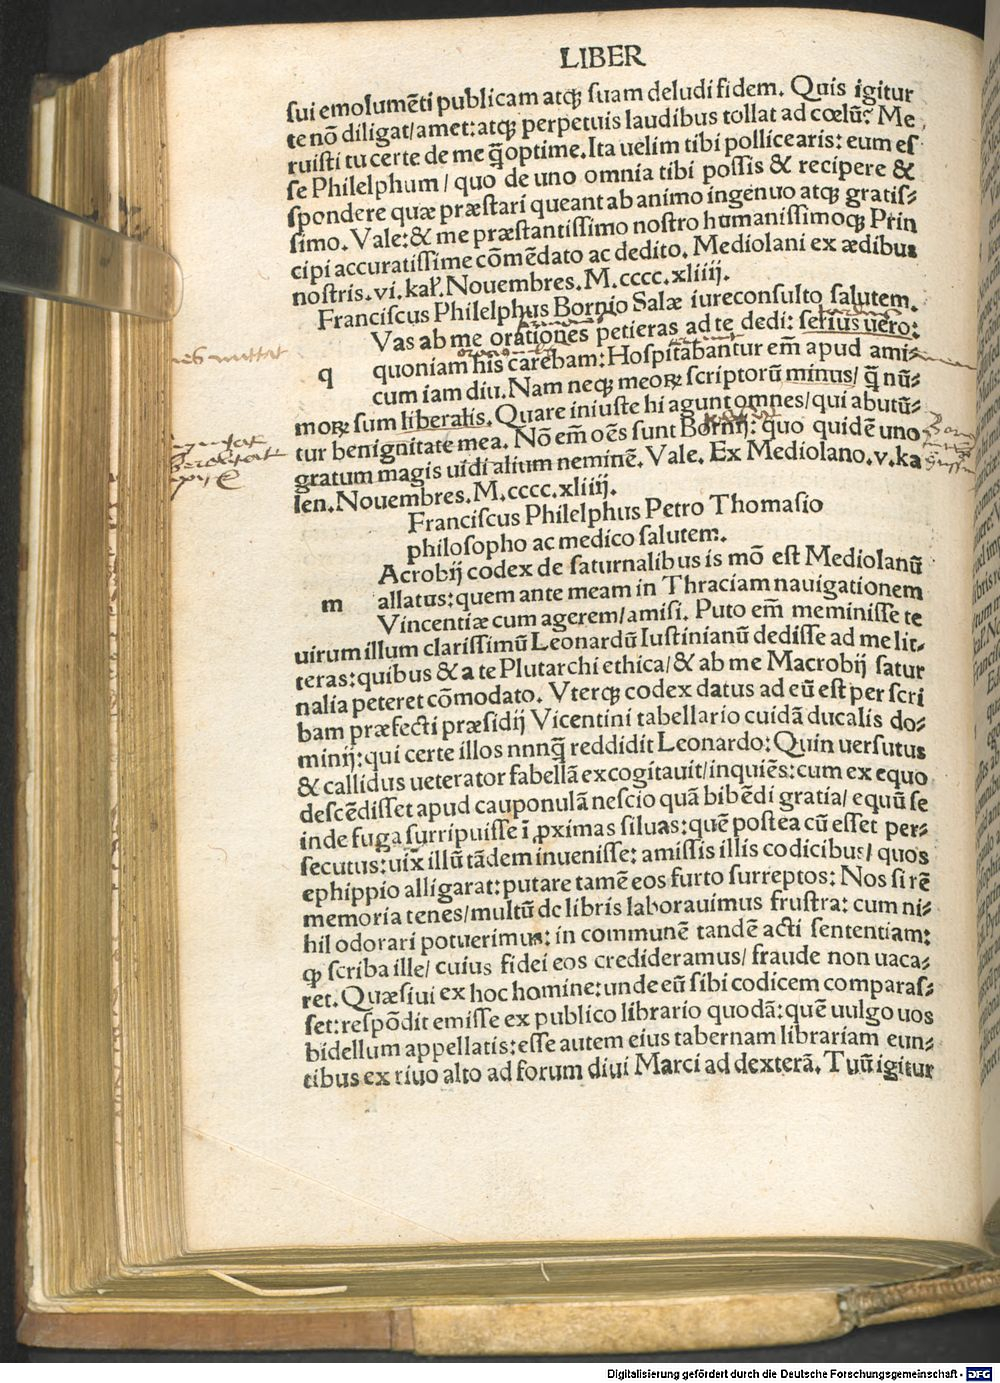 LIBER
sui emolumēti publicam atqꝫ suam deludi fidem. Quis igitur
te nō diligat/amet: atqꝫ perpetuis laudibus tollat ad cœlū? Me
ruisti tu certe de me q̄optime. Ita uelim tibi pollicearis: eum es
se Philelphum/ quo de uno omnia tibi possis & recipere &
spondere quæ præstari queant ab animo ingenuo atqꝫ gratis⸗
simo. Vale: & me præstantissimo nostro humanissimoqꝫ Prin
cipi accuratissime cōmēdato ac dedito. Mediolani ex ædibus
nostris. vi. kaƚ. Nouembres. M. cccc. xliiij.
Franciscus Philelphus Bornio Salæ iureconsulto salutem.
Vas ab me orationes petieras ad te dedi: serius uero:
q quoniam his carebam: Hospitabantur em̄ apud ami⸗
cum iam diu. Nam neqꝫ meoꝝ scriptorū minus/ q̄ nū⸗
moꝝ sum liberalis. Quare iniuste hi agunt omnes/ qui abutū⸗
tur benignitate mea. Nō em̄ oēs sunt Bornij: quo quidē uno
gratum magis uidi alium neminē. Vale. Ex Mediolano. v. ka
len. Nouembres. M. cccc. xliiij.
Franciscus Philelphus Petro Thomasio
philosopho ac medico salutem.
Acrobij codex de saturnalibus is mō est Mediolanū
m allatus: quem ante meam in Thraciam nauigationem
Vincentiæ cum agerem/amisi. Puto em̄ meminisse te
uirum illum clarissimū Leonardū Iustinianū dedisse ad me lit⸗
teras: quibus & a te Plutarchi ethica/ & ab me Macrobij satur
nalia peteret cōmodato. Vterqꝫ codex datus ad eū est per scri
bam præfecti præsidij Vicentini tabellario cuidā ducalis do⸗
minij: qui certe illos nnnq̄ reddidit Leonardo: Quin uersutus
& callidus ueterator fabellā excogitauit/inquiēs: cum ex equo
descēdisset apud cauponulā nescio quā bibēdi gratia/ equū se
inde fuga surripuisse ī ꝓximas siluas: quē postea cū esset per⸗
secutus: uix illū tādem inuenisse: amissis illis codicibus/ quos
ephippio alligarat: putare tamē eos furto surreptos: Nos si rē
memoria tenes/multū de libris laborauimus frustra: cum ni⸗
hil odorari potuerimus: in communē tandē acti sententiam:
ꝙ scriba ille/ cuius fidei eos credideramus/ fraude non uaca⸗
ret. Quæsiui ex hoc homine: unde eū sibi codicem comparas⸗
set: respōdit emisse ex publico librario quodā: quē uulgo uos
bidellum appellatis: esse autem eius tabernam librariam eun⸗
tibus ex riuo alto ad forum diui Marci ad dexterā. Tuū igitur
Digitalisierung gefördert durch die Deutsche Forschungsgemeinschaft - DFG